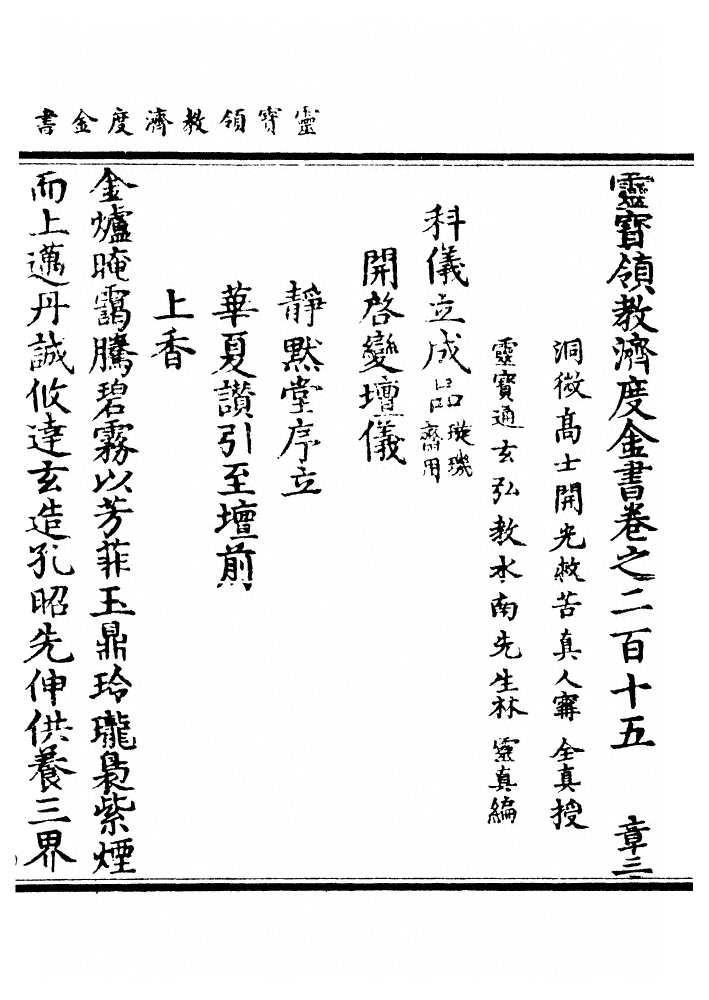 靈寳領教濟度金書
靈寳領教濟度金書卷之二百十五 章三
洞微高士開光救苦真人寗 全真授
靈寳通玄弘教水南先生林 靈真編
科儀立成品 璇璣齋用
開啓變壇儀
靜默堂序立
華夏讃引至壇前
上香
金爐晻靄騰碧霧以芳菲玉鼎玲瓏裊紫煙
而上邁丹誠攸達玄造孔昭先伸供養三界